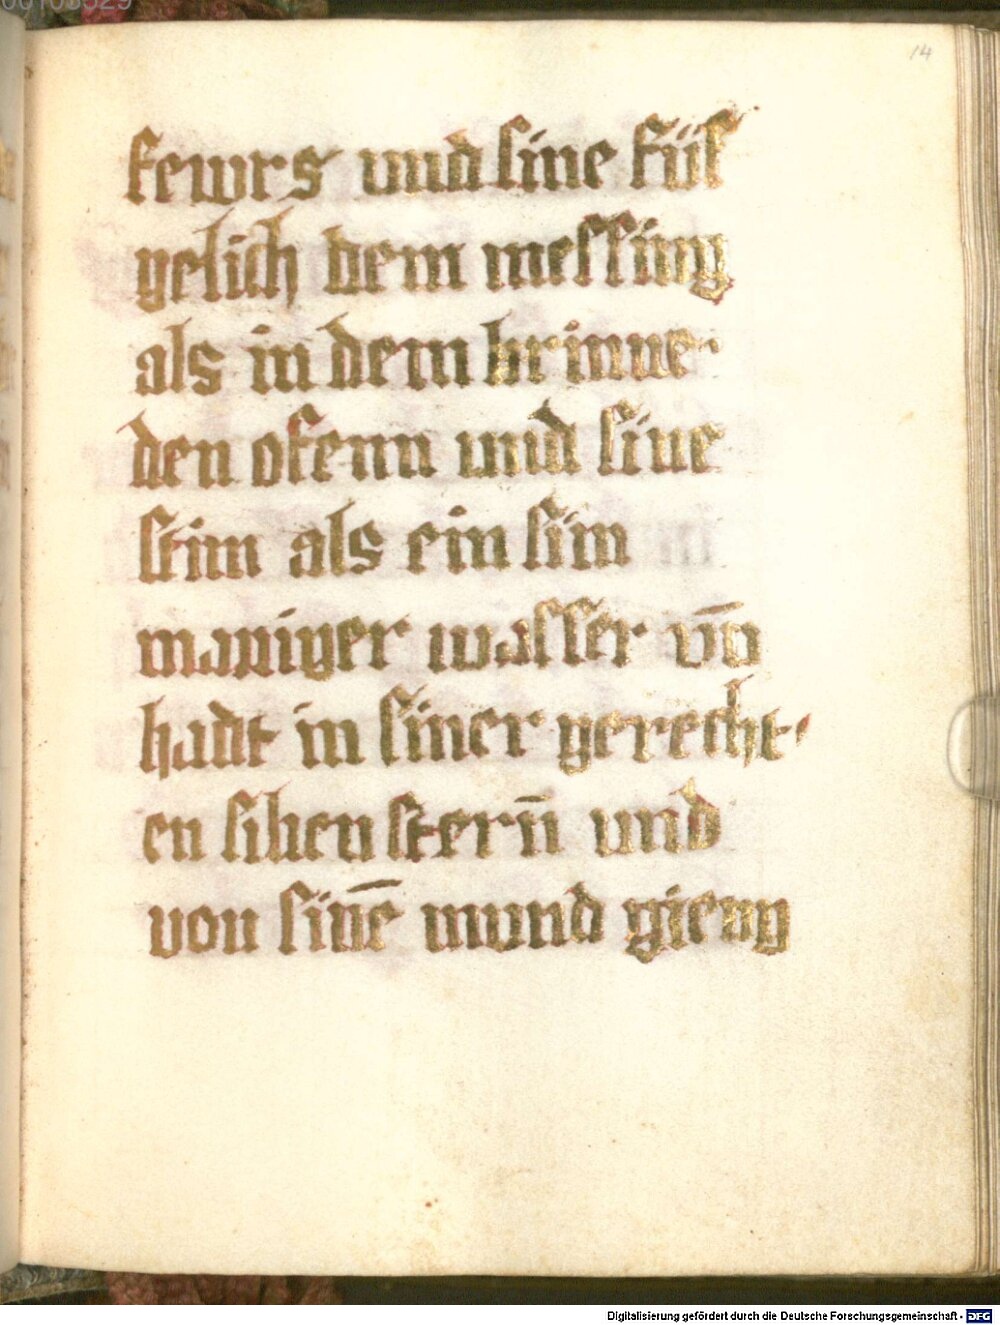 14
fewrs und sine füs
gelich dem messing
als in dem brinne
den ofenn und sine
stim als ein stim
maniger wasser vn̄
hadt in siner gerecht
en siben stern̄ und
von sinē mund gieng
Digitalisierung gefördert durch die Deutsche Forschungsgemeinschaft - DFG